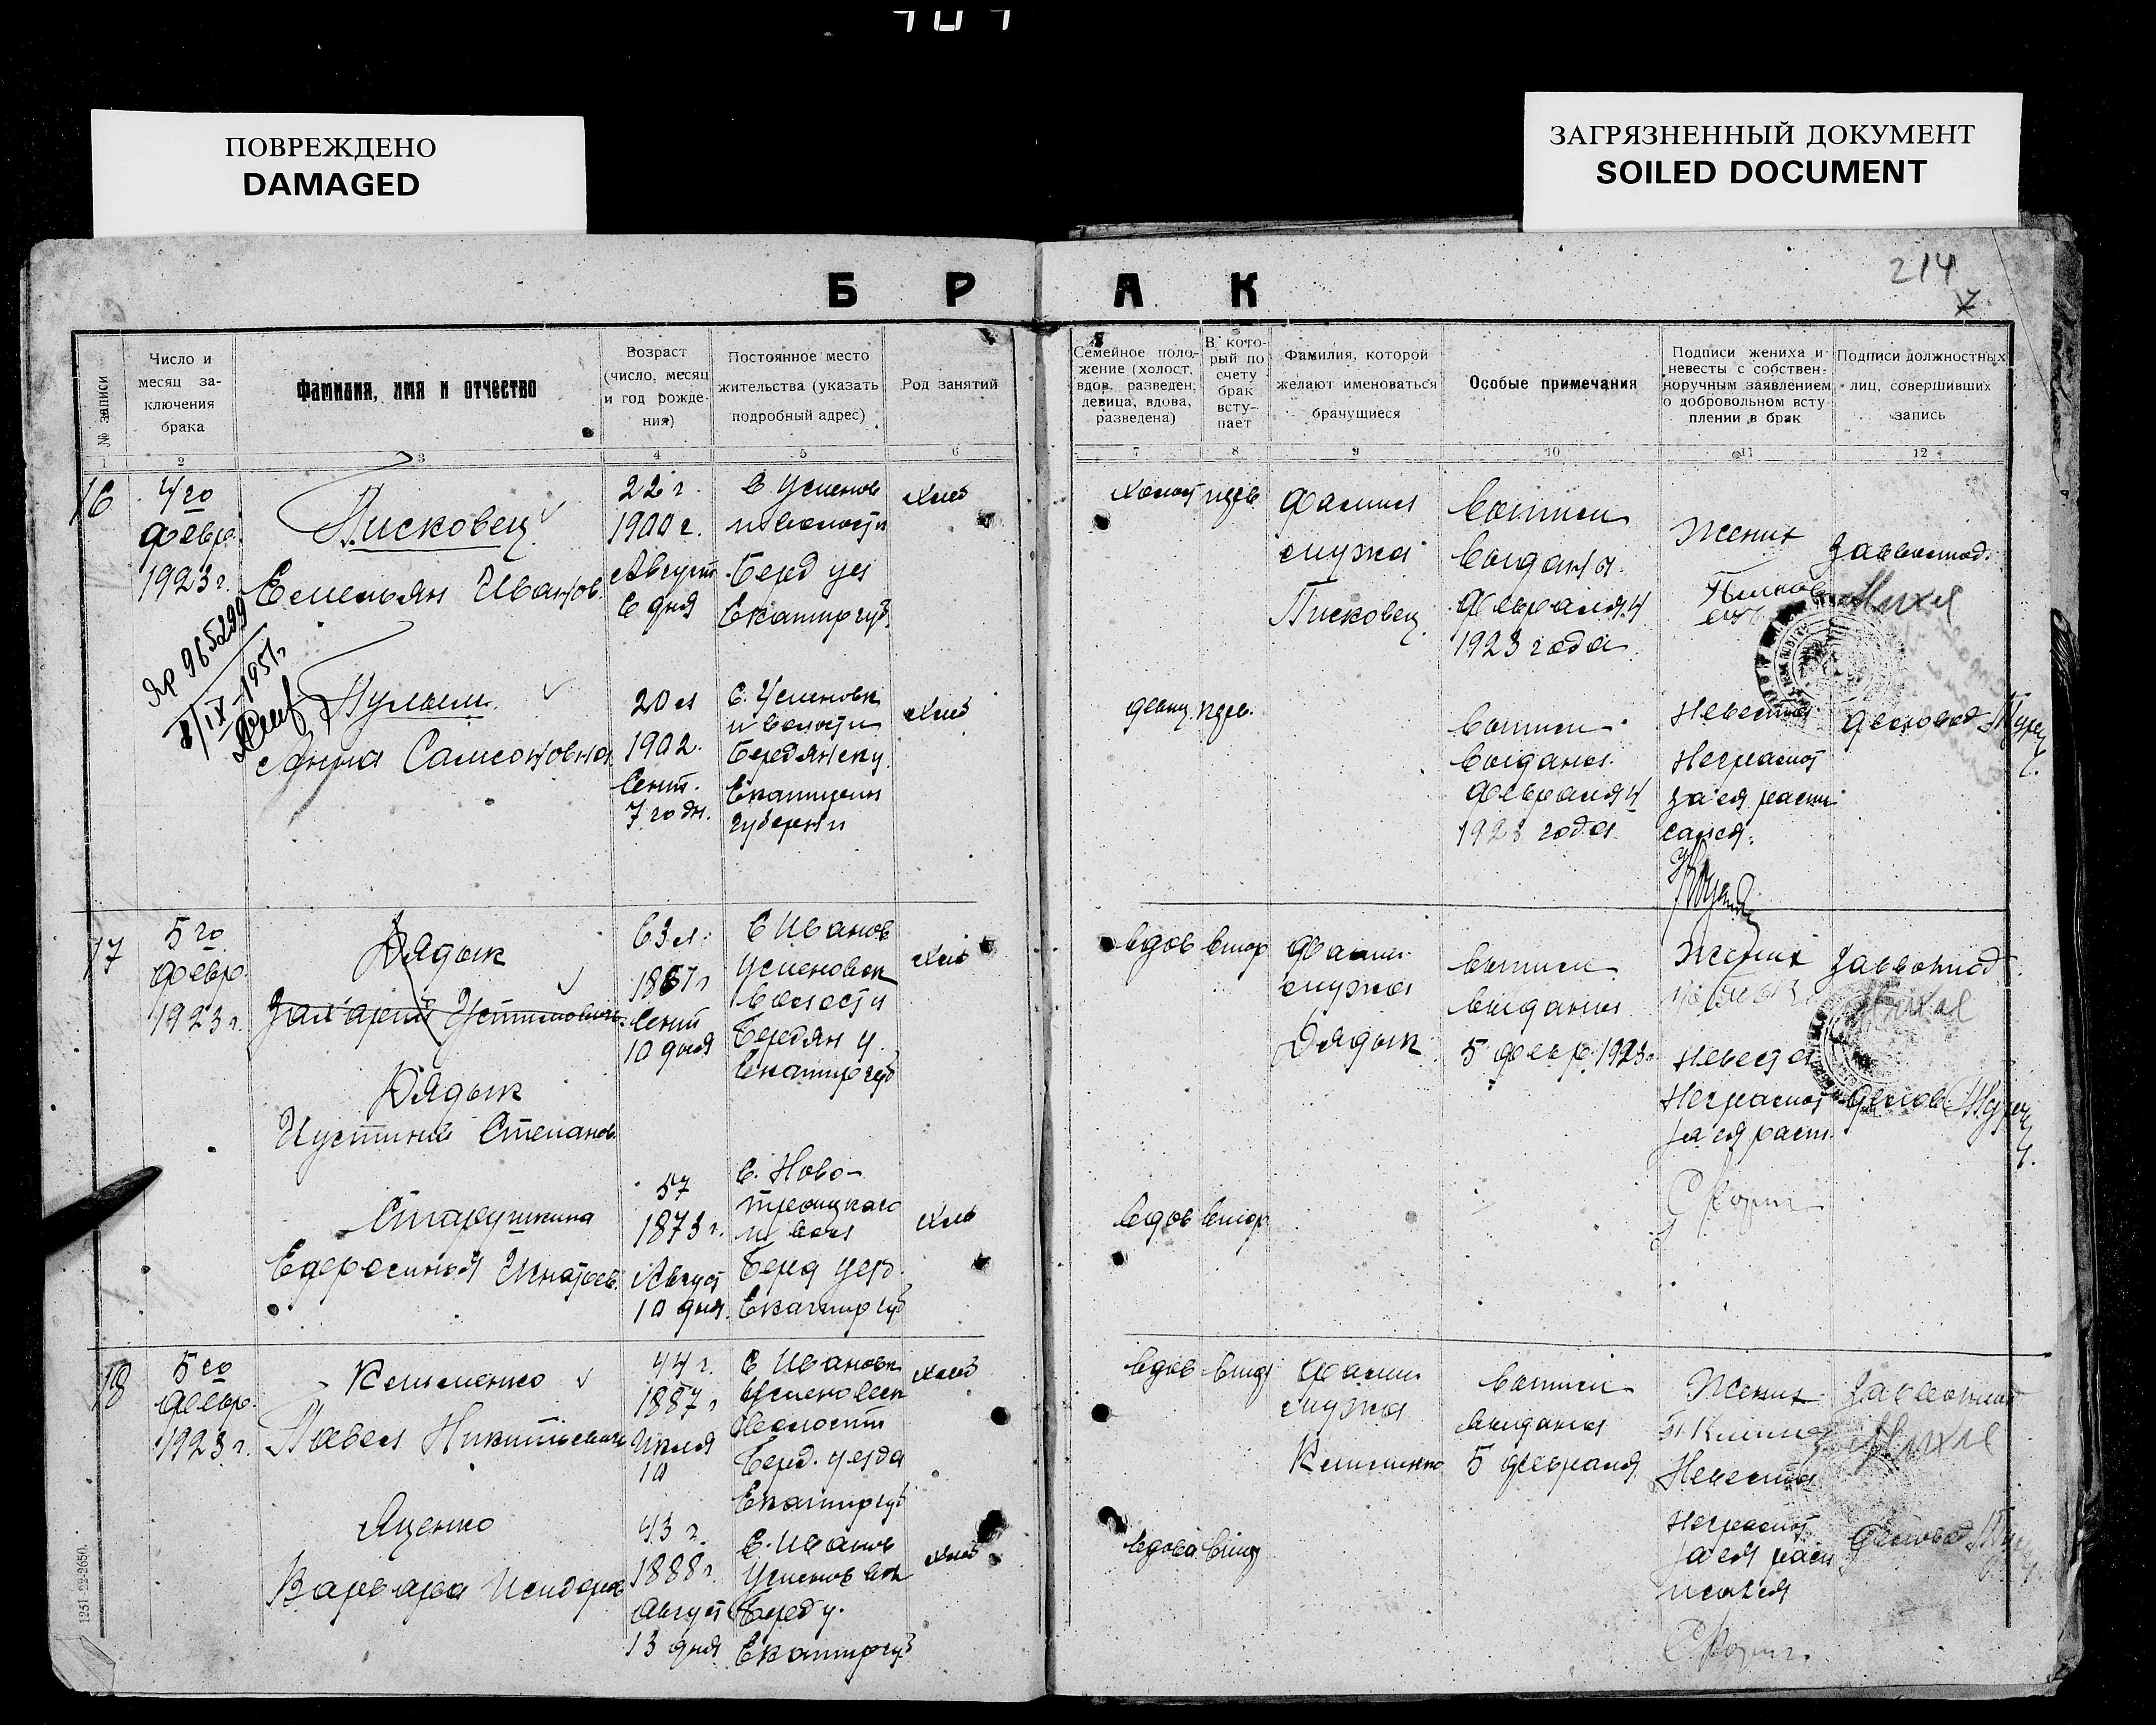 ПОВРЕЖДЕНО
DAMAGED
ЗАГРЯЗНЕННЫЙ ДОКУМЕНТ
SOILED DOCUMENT
БРАК
214
7
№ записи
Число и месяц заключения брака
Фамилия, имя и отчество
Возраст (число, месяц и год рождения)
Постоянное место жительства (указать подробный адрес)
Род занятий
Семейное положение (холост, вдов, разведен, девица, вдова, разведена)
В который по счету брак вступает
Фамилия, которой желают именоваться брачущиеся
Особые примечания
Подписи жениха и невесты с собственноручным заявлением о добровольном вступлении в брак
Подписи должностных лиц, совершивших запись
1 2 3 4 5 6 7 8 9 10 11 12
16
4го
Февр.
1923 г.
Писковец
Емельян Иванов.
22 г.
1900 г.
Август
6 дня
С Успенов
и волости
Берд уез
Екатир губ
Хлеб
Холост перв
Фамил
мужа
Писковец
Выписи
выданы
Февраля 4
1923 года
Жених
Завволпод.
яр 965299
8/IX-1951г.
Анна Самсоновна
20 л
1902.
Сент.
7 го дн.
С. Успеновк
и волости
Бердянску
Екатирин
губерни
Хлеб
девиц. перв.
Выписи
выданы
Февраля 4
1923 года
Невеста
Неграмот
за ея распи
сался.
17
5 го
Февр.
1923 г.
Дядык
Захарий Устимович
Дядык
Иустиний Степанов.
63 л.
1867 г
Сент
10 дня
С Иванов
Успеновск
волости
Бердян у.
Екатир губ
Хлеб
вдов втор
Фамил.
мужа
Дядык
Выписи
выданы
5 февр. 1923 г.
Жених
Завволпод
Невеста
Неграмот
за ея расп.
Старушкина
Ефросиния Игнатьев.
57
1873 г.
Август
10 дня.
С. Ново-
троицкого
и вол
Берд уезд.
Екатир губ
Хлеб
вдов втор
18
5 го
Февр.
1923 г.
Клименко
Павел Никитьевич
44 г.
1887 г
Июля
10
С Ивановк
Успеновск
волости
Берд. уезда
Екатир губ
Хлеб
вдов втор
Фамил.
мужа
Клименко
Выписи
выданы
5 февраля
Жених
Завволпод
Невеста
Неграмот
за ея расп
исался
Яценко
Варвара Исидоров
43 г.
1888 г.
Август
13 дня
С. Иванов
Успенов вол
Берд у.
Екатир губ
Хлеб
вдова втор
1251-22-2650.